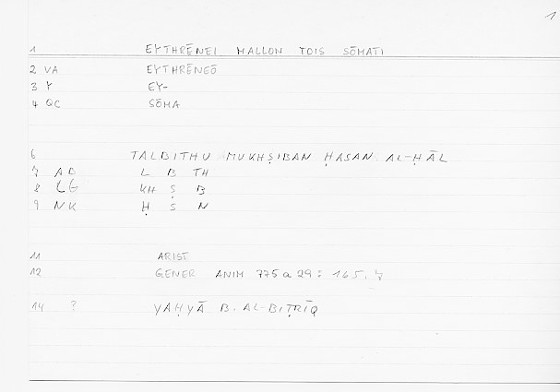 1
1 EYTHĒNEI MALLON TOIS SŌMATI
2 VA EYTHĒNEŌ
3 Y EY-
4 QC SŌMA
6 TALBITHU MUKHṢIBAN ḤASAN AL-ḤĀL
7 AB L B TH
8 LG KH Ṣ B
9 NK Ḥ S N
11 ARIST
12 GENER ANIM 775 a 29 : 165, 7
14 ? YAḤYĀ B. AL-BIṬRĪQ